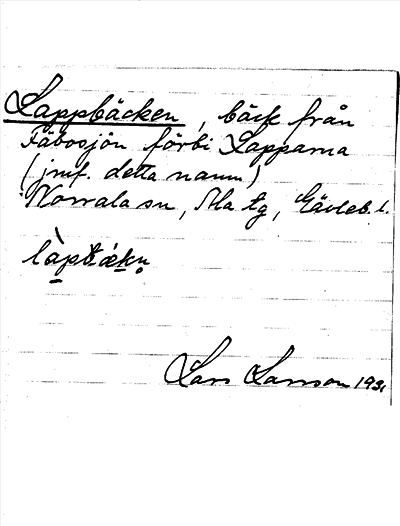 Lappbäcken, bäck från
Fäbosjön förbi Lapparna
(jmf. detta namn)
Norrala sn, Ala tg, Gävleb. l.
Lars Larsson 1931